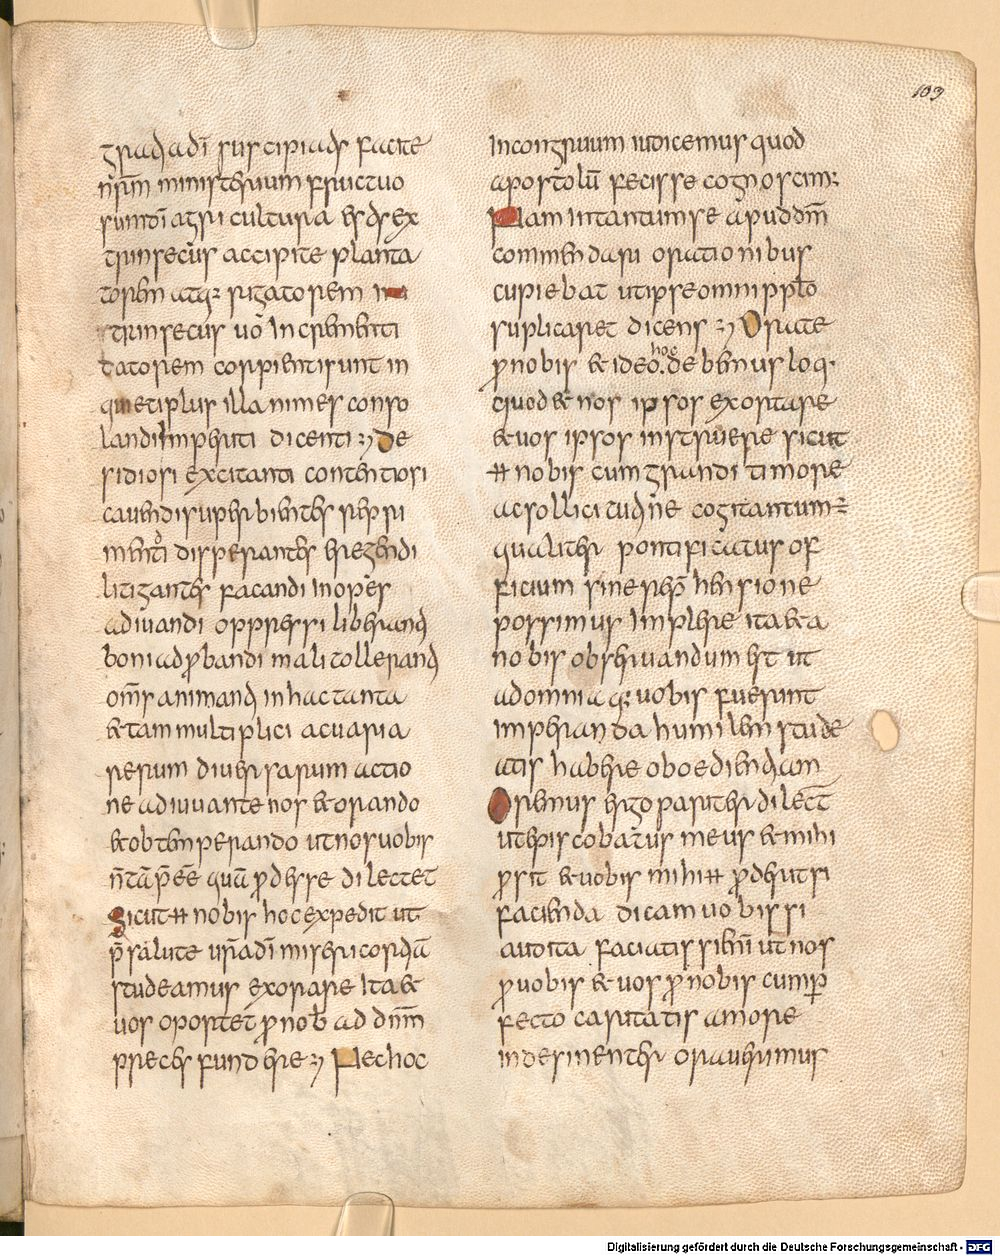 103
gratia dī suscipiads facite
nr̄m ministerium fructuo
sum dī agri cultura es ds ex
trinsecus accipite planta
torem atq; rigatorem in
trinsecus uō increment
datorem corpienti sunt in
quieti plus illanimes conso
landi inperiti dicenti ; de
sidiosi excitanti contentiosi
cauendi superbientes repri
mendi disperantes eregendi
litigantes pacandi inopes
adiuandi oppressi liberand
boni adprobandi mali tollerand
om̄s animand in hac tanta
& tam multiplici ac uaria
rerum diuersarum actio
ne adiuuante nos & orando
& obtemperando ut nos uobis
n̄ tā p̄ee quā prodesse dilectet
sicut ++ nobis hoc expedit ut
p̄ salute ur̄a dī misericordā
studeamus exorare Ita &
uos oportet pro nob ad dnm̄
preces fundere ; Nec hoc
Incongruum iudicemus quod
apostolū fecisse cognoscim;
Nam In tantum se apud dm̄
commendari orationibus
cupiebat ut ipse omni pplo
suplicaret dicens ; Orate
pro nobis & ideo hoc debemus loq;
quod & nos ipsos exortare
& uos ipsos instruere sicut
++ nobis cum grandi timore
ac sollicitudine cogitantum;
qualiter pontificatus of
ficium sine reprehensione
possimus Implere ita & a
nobis obseruandum est ut
ad omnia q; uobis fuerunt
imperanda humilem stude
atis habere oboediendam
Oremus ergo pariter dilect
ut episcobatus meus & mihi
prosit & uobis mihi ++ proderit si
facienda dicam uobis si
audita faciatis si enim ut nos
pro uobis & uos pro nobis cum per
fecto caritatis amore
indesinenter orauerimus
Digitalisierung gefördert durch die Deutsche Forschungsgemeinschaft - DFG